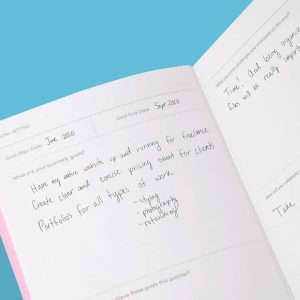 GOAL SETTING
Goal Start Date June 2020
Goal End Date Sept 2020
What are your quarterly goals?
Have my entire website up and running for freelance
Create clear and concise pricing sheet for clients
Portfolios for all types of work
- styling
- photography
- retouching
achieve these goals this quarter?
What are some challenges you anticipate on the way?
Time! And being organized
this will be really import
How will you
Take